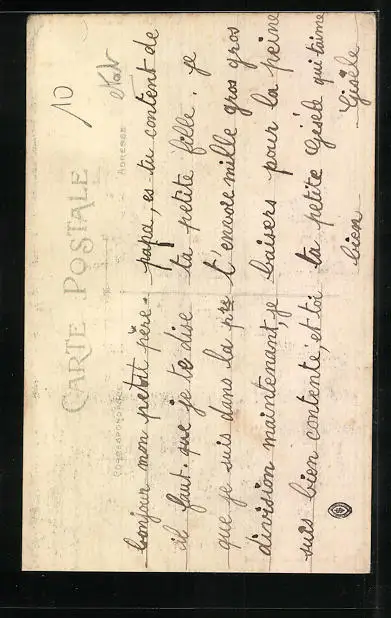 CARTE POSTALE
CORRESPONDANCE
ADRESSE
10
bonjour mon petit père.
il faut que je te dise
que je suis dans la pre
division maintenant, je
suis bien contente, et toi
papa, es tu content de
ta petite fille. je
t'envoie mille gros gros
baisers pour la peine
ta petite Gisèle qui t'aime
bien
Gisèle